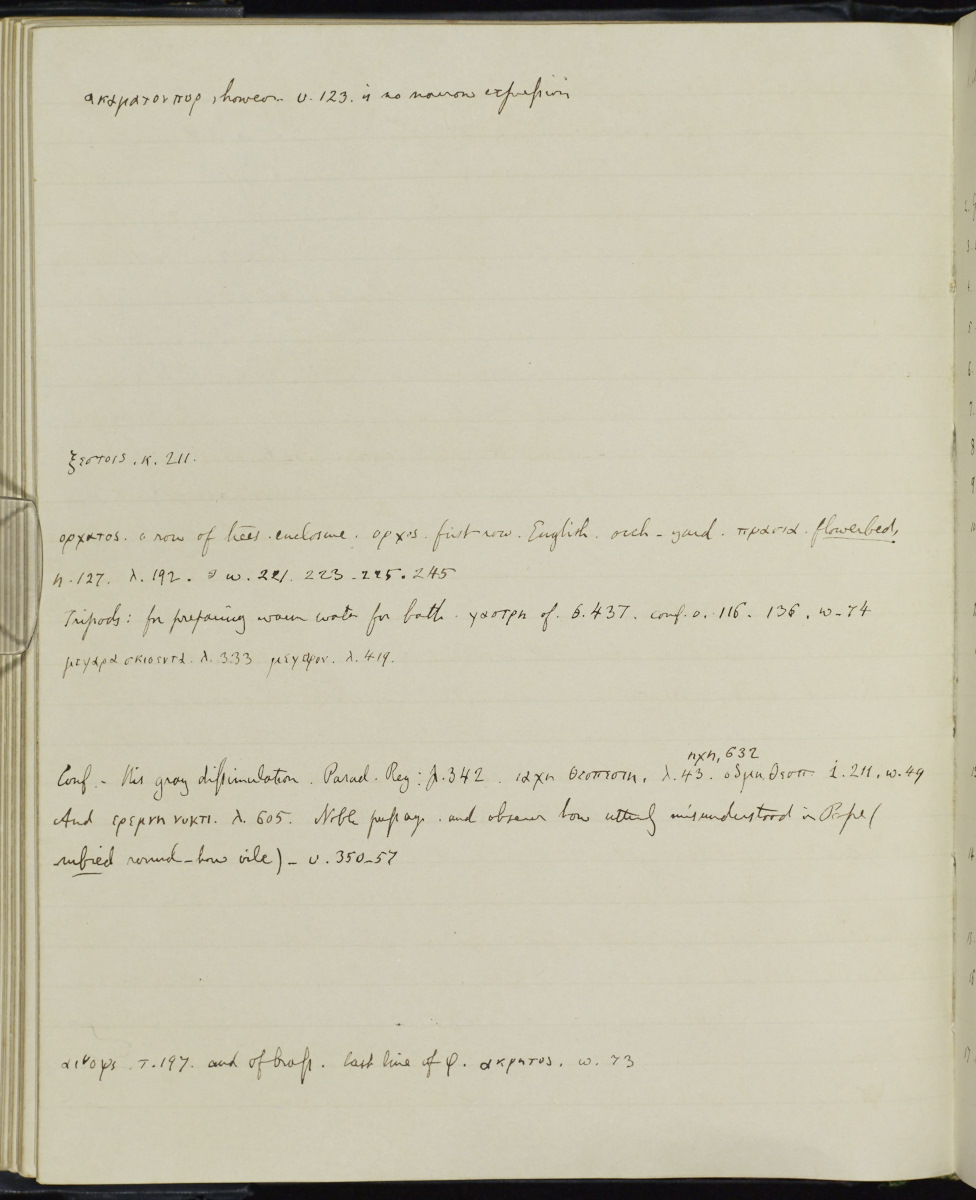 ακαματον πυρ, however. υ. 123. is no narrow expression
ξεστοις. κ. 211.
ορχατος. a row of trees. enclosure. ορχος. first row. English. orch-yard. πρασια. flowerbed,
η. 127. λ. 192. ω. 221. 223-225. 245
Tripods: for preparing warm water for bath. γαστρη of. θ. 437. conf. σ. 116. 136. ω-74
μεγαρα σκιοεντα. λ. 333 μεγαρον. λ. 419.
ηχη, 632
Conf. - His gray dissimulation. Parad. Reg: 342. ιαχη θεσπεσιη. λ. 43. οδμη θεσπ ι. 211. ω. 49
And ερεμνη νυκτι. λ. 605. Noble passage. and observe how utterly misunderstood in Pope (
rubied round-how vile) - υ. 350-57
αιθοψι. τ. 197. and of brass. last line of φ. ακρητος. ω. 73